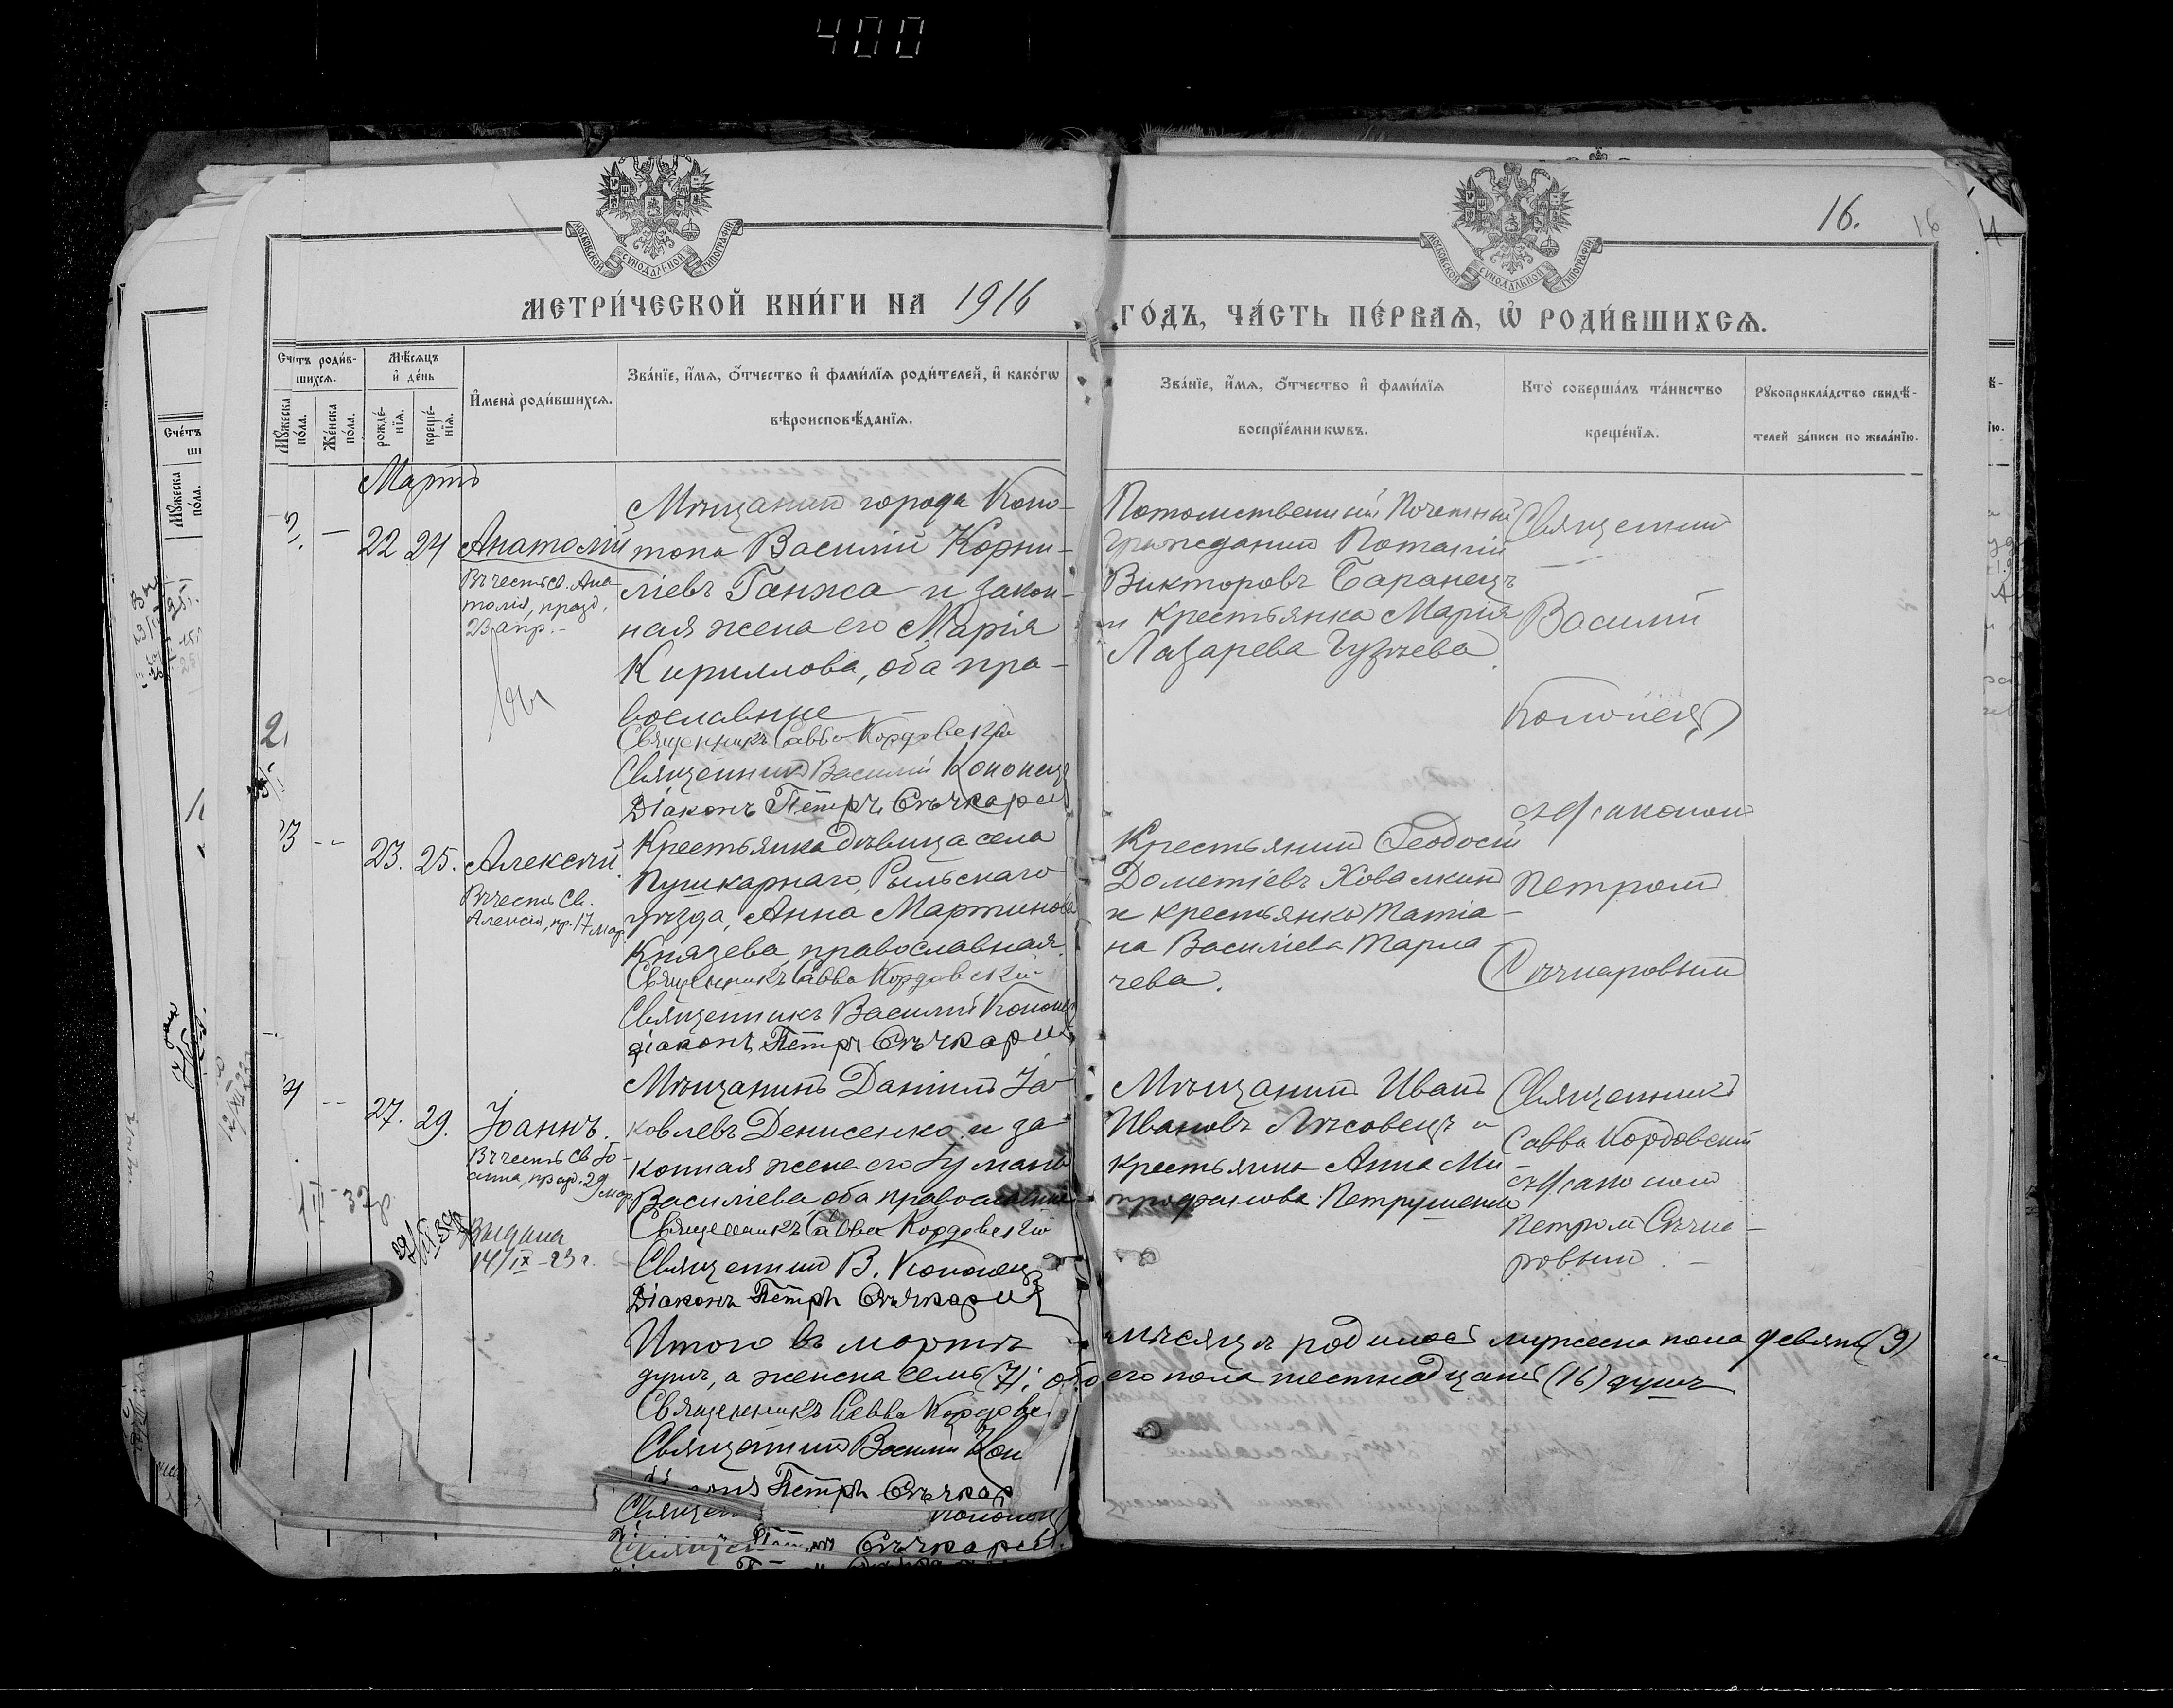 400
16.
16
МОСКОВСКОЙ СѴНОДАЛЬНОЙ ТИПОГРАФІИ
МОСКОВСКОЙ СѴНОДАЛЬНОЙ ТИПОГРАФІИ
МЕТРИ́ЧЕСКОЙ КНИ́ГИ НА 1916 ГО́ДЪ, ЧА́СТЬ ПЕ́РВАѦ, Ѡ҆ РОДИ́ВШИХСѦ.
Сче́тъ роди́вшихсѧ.
Мꙋ́жеска по́ла.
Же́нска по́ла.
Мѣ́сѧцъ и҆ де́нь
рожде́нїѧ.
креще́нїѧ.
И҆мена̀ роди́вшихсѧ.
Зва́нїе, и҆́мѧ, ѻ҆́тчество и҆ фами́лїѧ роди́телей, и҆ како́гѡ
вѣроисповѣ́данїѧ.
Зва́нїе, и҆́мѧ, ѻ҆́тчество и҆ фами́лїѧ
воспрїе́мникѡвъ.
Кто̀ соверша́лъ та́инство
креще́нїѧ.
Рꙋкоприкла́дство свидѣ́-
телей за́писи по жела́нїю.
Мартъ
22 24 Анатолій
Въ честь св. Ана-
толія, празд.
23 апр. -
Мѣщанинъ города Коно-
топа Василій Корни-
ліевъ Ганжа и закон-
ная жена его Марія
Кириллова, оба пра-
вославные
Священникъ Савва Кордовскій
Священникъ Василій Кононецъ
Діаконъ Петръ Сѣчкарев
Потомственный Почетный
гражданинъ Потапій
Викторовъ Баранецъ
и крестьянка Марія
Лазарева Гузѣева
Священникъ
Василій
Кононецъ
съ діакономъ
Петромъ
Сѣчкаровымъ
23. 25. Алексій.
Въ честь Св.
Алексія, пр. 17 мар.
Крестьянка дѣвица села
Пушкарнаго, Рыльскаго
уѣзда, Анна Мартинова
Князева, православная.
Священникъ Савва Кордовскій
Священникъ Василій Кононецъ
діаконъ Петръ Сѣчкарев
Крестьянинъ Ѳеодосій
Дометіевъ Ховалкинъ
и крестьянка Татіа-
на Василіева Тарла-
чева.
27. 29. Іоаннъ.
Въ честь св. Іо-
анна, празд. 29 мар.
Выдана
14/IX-23 г.
Мѣщанинъ Даніилъ Іа-
ковлевъ Денисенко и за-
конная жена его Іуліанія
Василіева, оба православные
Священникъ Савва Кордовскій
Священникъ В. Кононецъ
Діаконъ Петръ Сѣчкарев
Мѣщанинъ Иванъ
Ивановъ Лѣсовецъ и
крестьянка Анна Ми-
трофанова Петрушенко
Священникъ
Савва Кордовскій
съ діакономъ
Петромъ Сѣчка-
ровымъ. -
Итого въ мартѣ мѣсяцѣ родилось мужеска пола девять (9)
душъ, а женска семь (7); обоего пола шестнадцать (16) душъ
Священникъ Савва Кордовс
Священникъ Василій Кон
Петръ Сѣчкар
Сѣчкарев